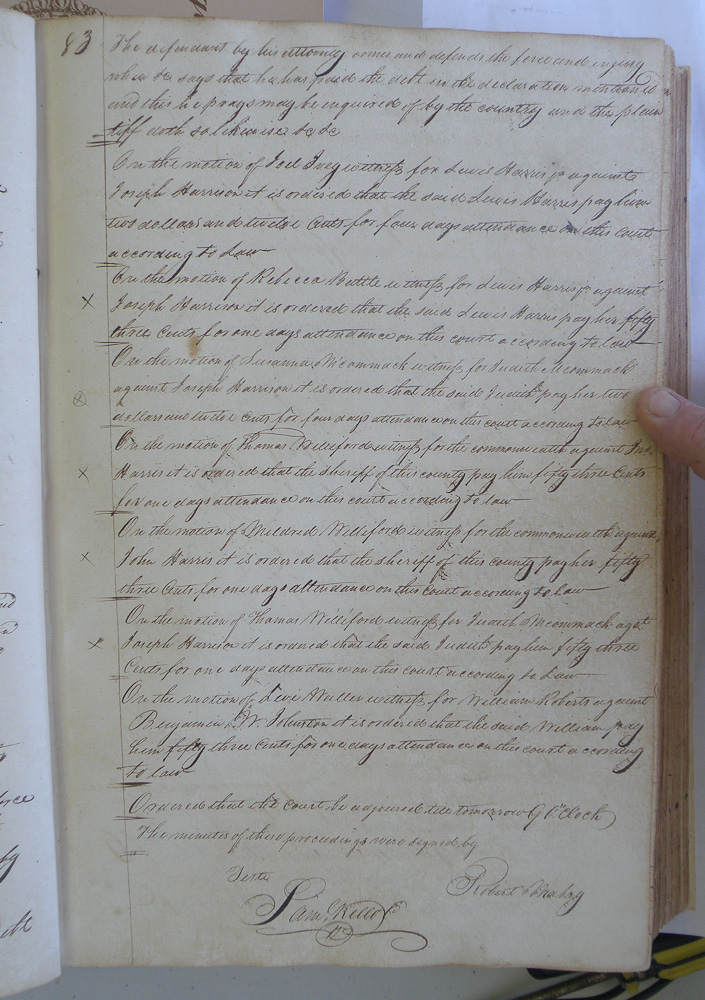 83
The defendant by his attorney comes and defends the force and injury
when &c says that he has paid the debt in the declaration mentioned
and this he prays may be inquired of by the country and the plain
tiff doth so likewise &c &c
On the motion of Joel Ivey witness for Lewis Harris jr against
Joseph Harrison it is ordered that the said Lewis Harris pay him
two dollars and twelve Cents for four days attendance on this court
according to Law
On the motion of Rebecca Battle witness for Lewis Harris jr against
Joseph Harrison it is ordered that the said Lewis Harris pay her fifty
three Cents for one days attendance on this court according to law
On the motion of Susanna McCommack witness for Judith McCommack
against Joseph Harrison it is ordered that the said Judith pay her two
dollars and twelve Cents for four days attendance on this court according to Law
On the motion of Thomas Williford witness for the commonwealth against Jno.
Harris it is ordered that the sheriff of this county pay him fifty three Cents
for one days attendance on this court according to law
On the motion of Mildred Williford witness for the commonwealth against
John Harris it is ordered that the sheriff of this county pay her fifty
three Cents for one days attendance on this Court according to law
On the motion of Thomas Williford witness for Judith McCommack agst
Joseph Harrison it is ordered that the said Judith pay him fifty three
Cents for one days attendance on this court according to Law
On the motion of Levi Waller witness for William Roberts against
Benjamin W. Johnston it is ordered that the said William pay
him fifty three Cents for one days attendance on this court according
to law
Ordered that the court be adjourned till tomorrow 9 O'Clock
The minutes of these proceedings were signed by
Teste
Robert
Sam Kello